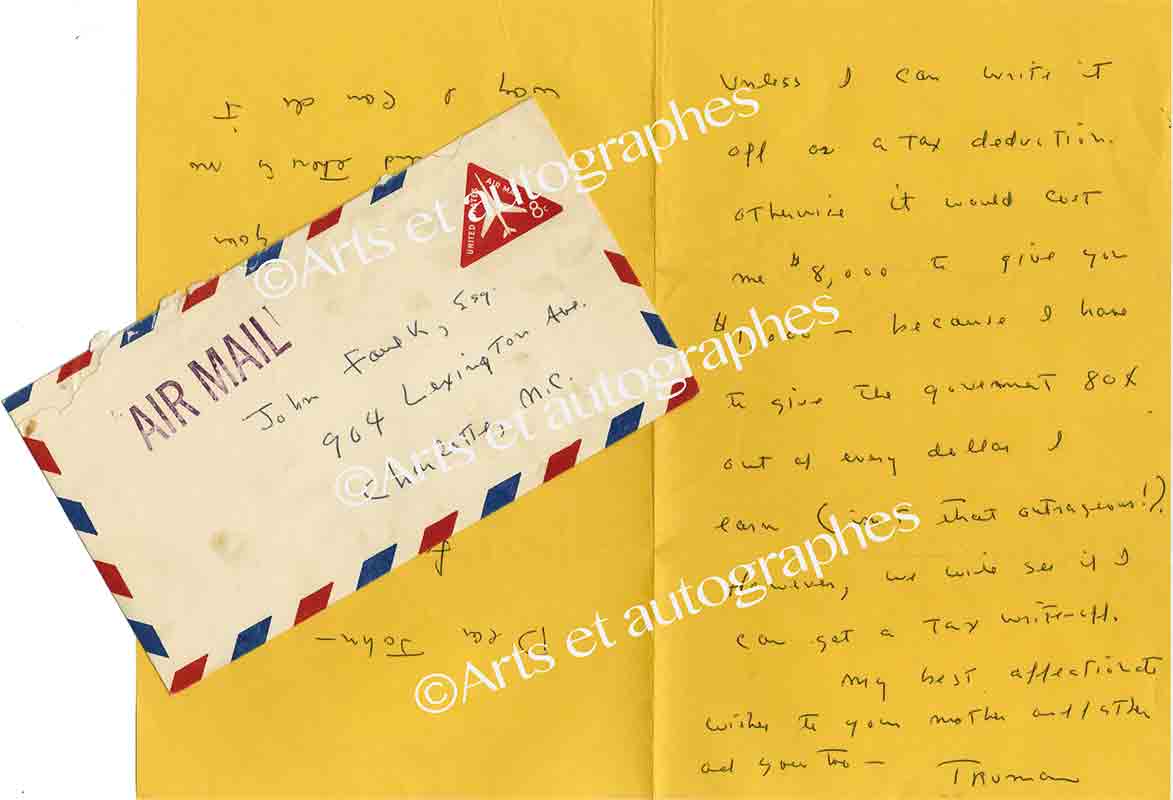 Dear
John—
your
way I can do it
AIR MAIL
UNITED STATES AIR MAIL 8c
John Faulk, Esq.
904 Lexington Ave.
Charlotte, N.C.
Unless I can write it
off as a tax deduction.
otherwise it would cost
me $8,000 to give you
$1,000 — because I have
to give the goverment 80%
out of every dollar I
earn ( that outrageous!).
However, we will see if I
can get a tax write-off.
My best affectionate
wishes to your mother and father
and you too —
Truman
©Arts et autographes
©Arts et autographes
©Arts et autographes
©Arts et autographes